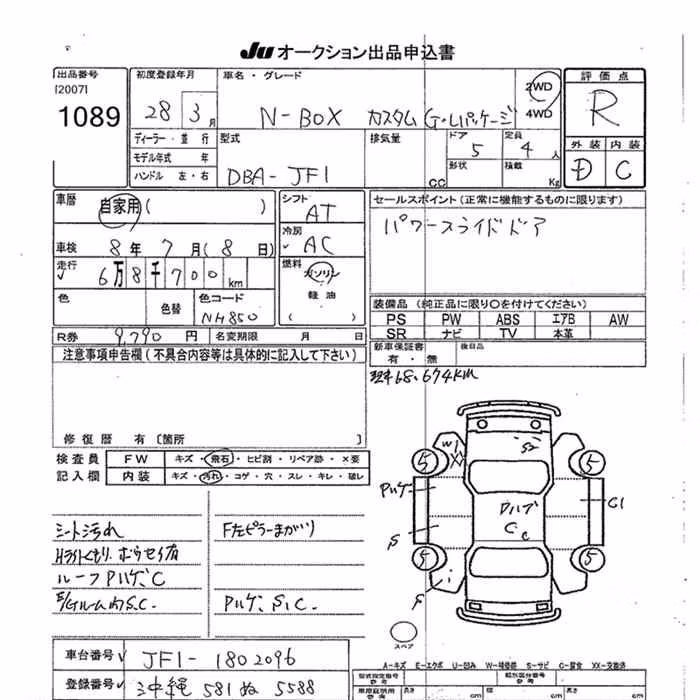 Ju オークション出品申込書
出品番号
[2007]
1089
初度登録年月
28 3月
車名・グレード
N-BOX カスタム G・Lパッケージ
2WD
4WD
評価点
R
外装 内装
D C
ディーラー・並行
モデル年式 年
ハンドル 左・右
型式
DBA-JF1
排気量
CC
ドア
5
形状
定員
4人
積載
Kg
車歴
自家用( )
車検 8年 7月(8日)
走行
6万8千700km
色
色替
色コード
NH850
シフト
AT
冷房
AC
燃料
ガソリン
軽油
セールスポイント(正常に機能するものに限ります)
パワースライドドア
装備品(純正品に限り〇を付けてください)
PS PW ABS エアB AW
SR ナビ TV 本革
新車保証書
有・無
後日品
R券 9,790円
名変期限 月 日
注意事項申告欄(不具合内容等は具体的に記入して下さい)
修復歴 有〔箇所 〕
68,674KM
検査員 FW キズ・飛石・ヒビ割・リペア跡・×要
記入欄 内装 キズ・汚れ・コゲ・穴・スレ・キレ・破レ
シート汚れ
ルーフPハゲ、C
E/Gルーム内S.C.
F左ピラーまがり
Pハゲ、S.C.
W
5
5
5
5
Pハゲ
S
F
G1
C
スペア
A-キズ E-エクボ U-凹み W-補修跡 S-サビ C-腐食 XX-交換済
車台番号 JF1-1802096
登録番号 沖縄 581 ぬ 5588
型式指定番号
参考
類別区分番号
参考
車庫証明用
参考
長さ
cm
幅
cm
高さ
cm